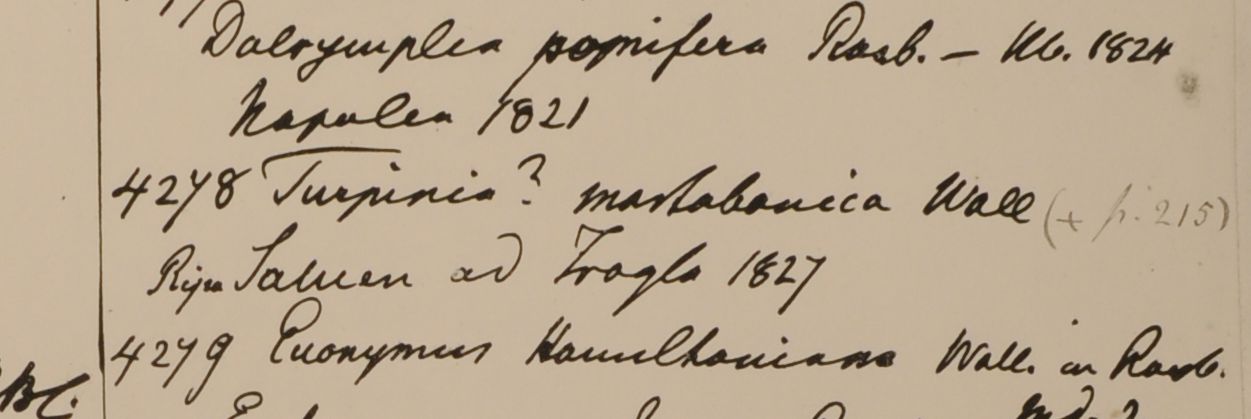 Dalrymplea pomifera Roxb. – Hb. 1824
Napalea 1821
4278 Turpinia? martabanica Wall (+ p. 215)
Ripa Saluen ad Trogla 1827
4279 Euonymus Hamiltoniana Wall. in Roxb.